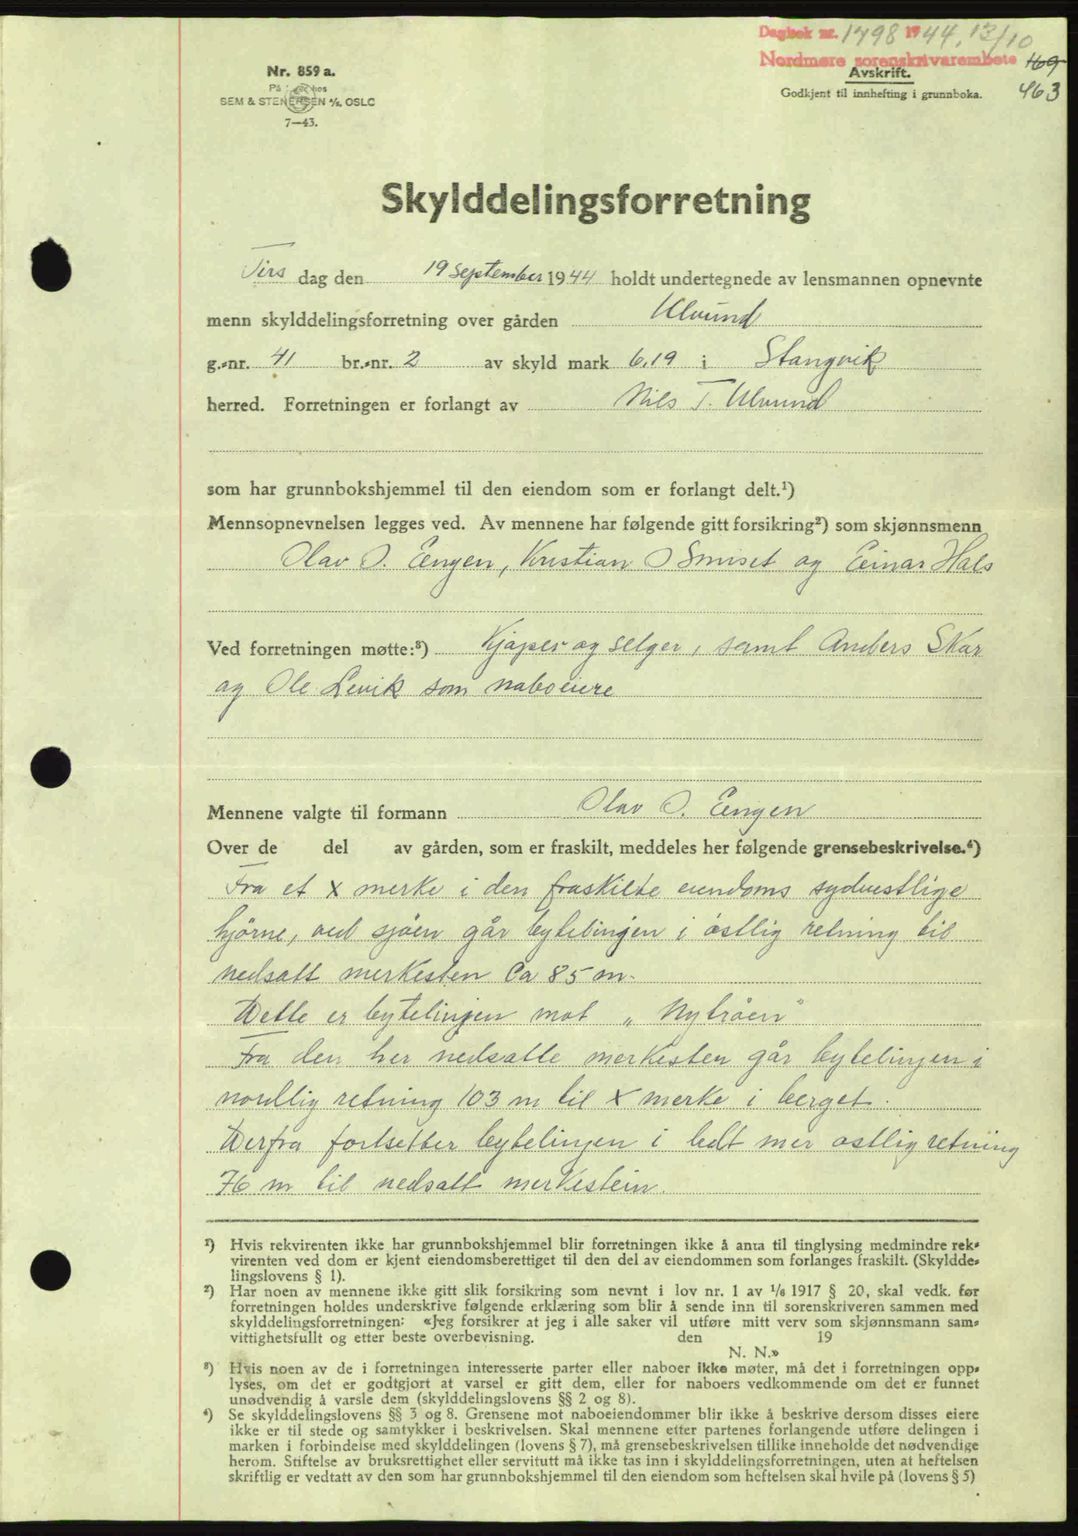 Dagbok nr. 1798 1944, 13/10
Nordmøre sorenskrivarembete 169
Nr. 859 a.
Avskrift.
SEM & STENERSEN A/S, OSLO
Godkjent til innhefting i grunnboka. 463
7—43.
Skylddelingsforretning
Tirs dag den 19 september 1944 holdt undertegnede av lensmannen opnevnte
menn skylddelingsforretning over gården Ulvund
g.-nr. 41 br.-nr. 2 av skyld mark 6,19 i Stangvik
herred. Forretningen er forlangt av Nils T. Ulvund
som har grunnbokshjemmel til den eiendom som er forlangt delt.¹)
Mennsopnevnelsen legges ved. Av mennene har følgende gitt forsikring²) som skjønnsmenn
Olav O. Engen, Kristian O Smiset og Einar Hals
Ved forretningen møtte:³) Kjøper og selger, samt Anders Skar
og Ole Levik som naboeiere
Mennene valgte til formann Olav O. Engen
Over de del av gården, som er fraskilt, meddeles her følgende grensebeskrivelse.⁴)
Fra et x merke i den fraskilte eiendoms sydvestlige
hjørne, ved sjøen går bytelinjen i østlig retning til
nedsatt merkesten Ca 85 m.
Dette er bytelinjen mot „Nytrøen"
Fra den her nedsatte merkesten går bytelinjen i
nordlig retning 103 m til x merke i berget.
Derfra fortsetter bytelinjen i ledt mer østlig retning
76 m til nedsatt merkestein.
¹) Hvis rekvirenten ikke har grunnbokshjemmel blir forretningen ikke å anta til tinglysing medmindre rek-
virenten ved dom er kjent eiendomsberettiget til den del av eiendommen som forlanges fraskilt. (Skyldde-
lingslovens § 1).
²) Har noen av mennene ikke gitt slik forsikring som nevnt i lov nr. 1 av 1/6 1917 § 20, skal vedk. før
forretningen holdes underskrive følgende erklæring som blir å sende inn til sorenskriveren sammen med
skylddelingsforretningen: «Jeg forsikrer at jeg i alle saker vil utføre mitt verv som skjønnsmann sam-
vittighetsfullt og etter beste overbevisning. den 19
N. N.»
³) Hvis noen av de i forretningen interesserte parter eller naboer ikke møter, må det i forretningen opp-
lyses, om det er godtgjort at varsel er gitt dem, eller for naboers vedkommende om det er funnet
unødvendig å varsle dem (skylddelingslovens §§ 2 og 8).
⁴) Se skylddelingslovens §§ 3 og 8. Grensene mot naboeiendommer blir ikke å beskrive dersom disses eiere
ikke er til stede og samtykker i beskrivelsen. Skal mennene etter partenes forlangende utføre delingen i
marken i forbindelse med skylddelingen (lovens § 7), må grensebeskrivelsen tillike inneholde det nødvendige
herom. Stiftelse av bruksrettighet eller servitutt må ikke tas inn i skylddelingsforretningen, uten at heftelsen
skriftlig er vedtatt av den som har grunnbokshjemmel til den eiendom som heftelsen skal hvile på (lovens § 5)